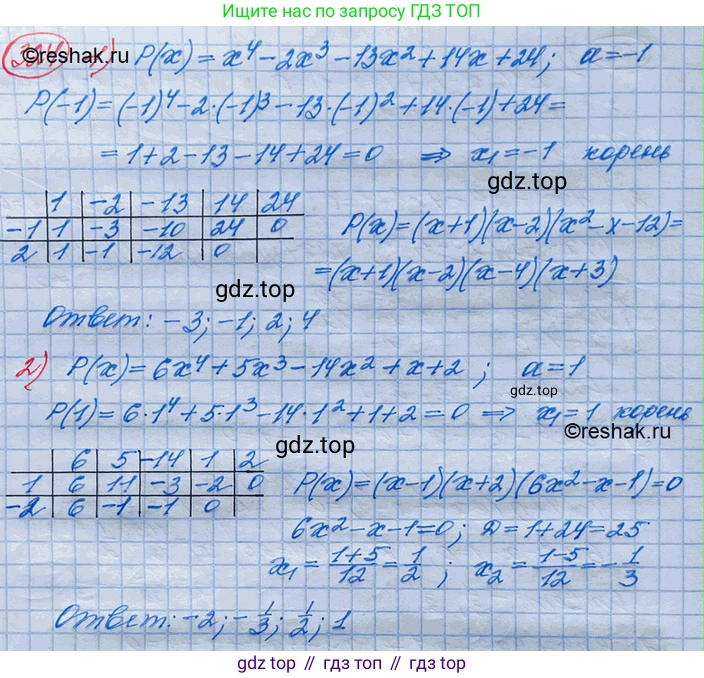 Ищите нас в поисковике по запросу ГДЗ ТОП
324 ©reshak.ru 1) P(x) = x⁴ - 2x³ - 13x² + 14x + 24; a = -1
P(-1) = (-1)⁴ - 2·(-1)³ - 13·(-1)² + 14·(-1) + 24 =
= 1 + 2 - 13 - 14 + 24 = 0 ⇒ x₁ = -1 корень
gdz.top
1 | -2 | -13 | 14 | 24
-1 | 1 | -3 | -10 | 24 | 0
2 | 1 | -1 | -12 | 0
P(x) = (x+1)(x-2)(x²-x-12) =
= (x+1)(x-2)(x-4)(x+3)
gdz.top
Ответ: -3; -1; 2; 4
2) P(x) = 6x⁴ + 5x³ - 14x² + x + 2; a = 1
gdz.top
P(1) = 6·1⁴ + 5·1³ - 14·1² + 1 + 2 = 0 ⇒ x₁ = 1 корень
©reshak.ru
gdz.top
6 | 5 | -14 | 1 | 2
1 | 6 | 11 | -3 | -2 | 0
-2 | 6 | -1 | -1 | 0
P(x) = (x-1)(x+2)(6x²-x-1) = 0
6x² - x - 1 = 0; D = 1 + 24 = 25
x₁ = (1+5)/12 = 1/2; x₂ = (1-5)/12 = -1/3
Ответ: -2; -1/3; 1/2; 1
gdz.top // гдз топ // гдз.топ